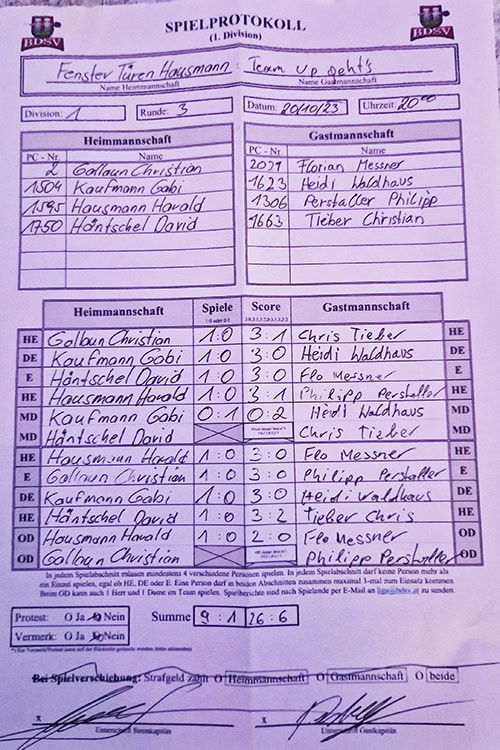 BDSV SPIELPROTOKOLL BDSV
(1. Division)
Fenster Türen Hausmann : Team Up geht's
Name Heimmannschaft Name Gastmannschaft
Division: 1 Runde: 3 Datum: 20/10/23 Uhrzeit: 20⁰⁰
Heimmannschaft Gastmannschaft
PC - Nr. Name PC - Nr. Name
2 Gollaun Christian 2071 Florian Messner
1504 Kaufmann Gabi 1623 Heidi Waldhaus
1595 Hausmann Harald 1306 Perstaller Philipp
1750 Häntschel David 1663 Tieber Christian
Heimmannschaft Spiele Score Gastmannschaft
HE Gollaun Christian 1:0 3:1 Chris Tieber HE
DE Kaufmann Gabi 1:0 3:0 Heidi Waldhaus DE
E Häntschel David 1:0 3:0 Flo Messner E
HE Hausmann Harald 1:0 3:1 Philipp Perstaller HE
MD Kaufmann Gabi 0:1 0:2 Heidi Waldhaus MD
MD Häntschel David Chris Tieber MD
HE Hausmann Harald 1:0 3:0 Flo Messner HE
E Gollaun Christian 1:0 3:0 Philipp Perstaller E
DE Kaufmann Gabi 1:0 3:0 Heidi Waldhaus DE
HE Häntschel David 1:0 3:2 Tieber Chris HE
OD Hausmann Harald 1:0 2:0 Flo Messner OD
OD Gollaun Christian Philipp Perstaller OD
In jedem Spielabschnitt müssen mindestens 4 verschiedene Personen spielen. In jedem Spielabschnitt darf keine Person mehr als
ein Einzel spielen, egal ob HE, DE oder E. Eine Person darf in beiden Abschnitten zusammen maximal 3-mal zum Einsatz kommen.
Beim OD kann auch 1 Herr und 1 Dame im Team spielen. Spielberichte sind nach Spielende per E-Mail an liga@bdsv.at zu senden.
Protest: O Ja O Nein Summe 9:1 26:6
Vermerk: O Ja O Nein
Bei Spielverschiebung: Strafgeld zahlt O Heimmannschaft O Gastmannschaft O beide
x x
Unterschrift Heimkapitän Unterschrift Gastkapitän